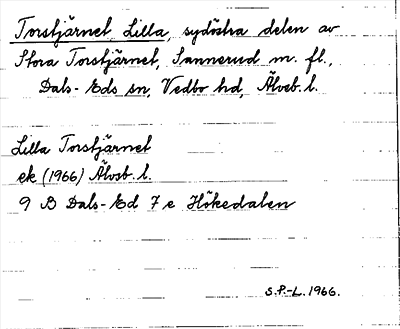 Torstjärnet, Lilla, sydöstra delen av
Stora Torstjärnet, Sannerud m. fl.,
Dals-Eds sn, Vedbo hd, Älvsb. l.
Lilla Torstjärnet
ek (1966) Älvsb. l.
9 B Dals-Ed 7 e Hökedalen
S.P.-L. 1966.